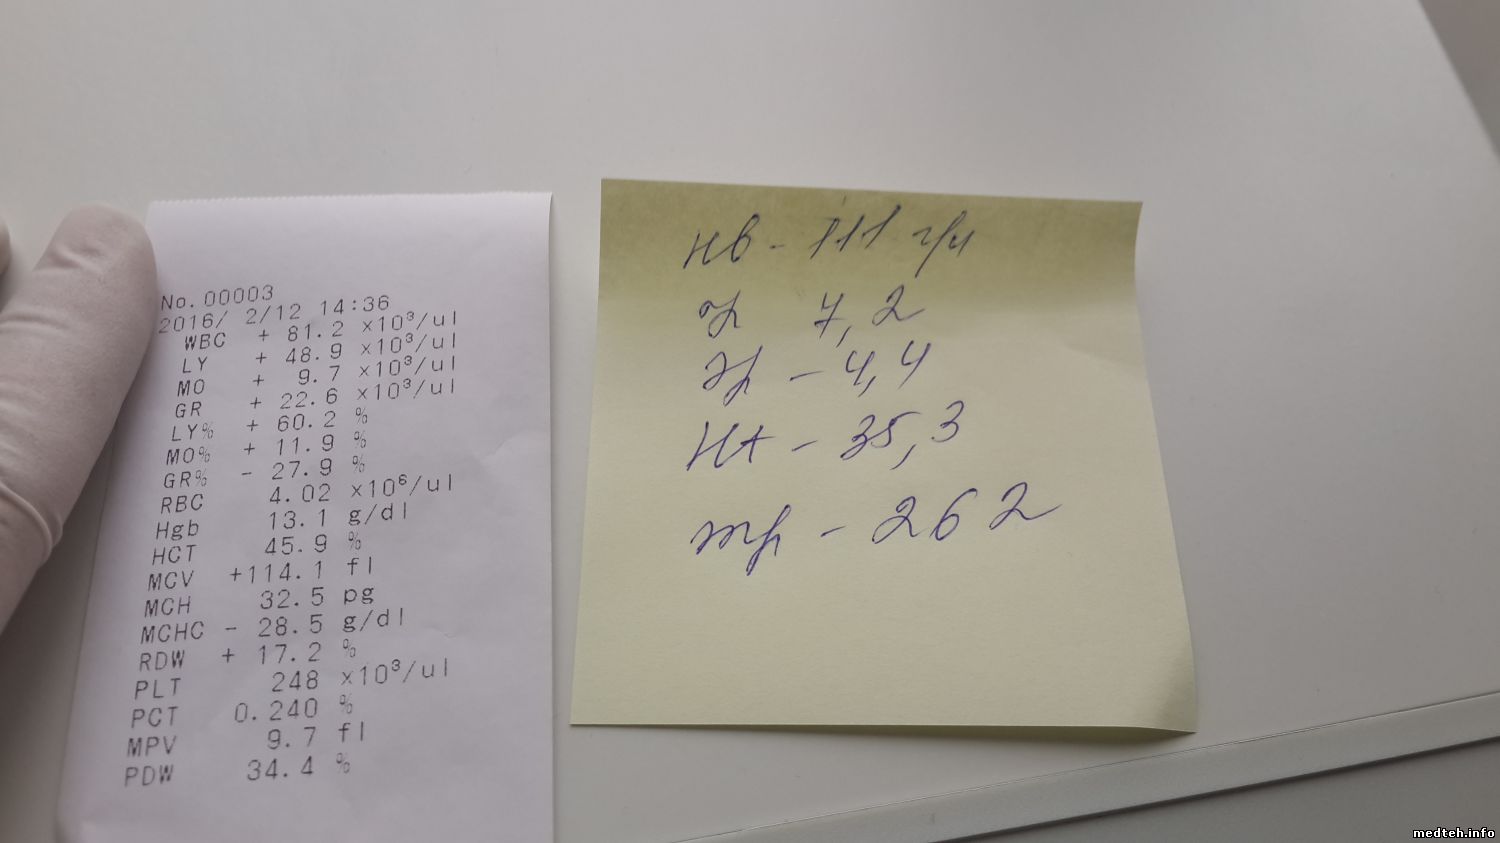 No.00003
2016/ 2/12 14:36
WBC + 81.2 ×10³/ul
LY + 48.9 ×10³/ul
MO + 9.7 ×10³/ul
GR + 22.6 ×10³/ul
LY% + 60.2 %
MO% + 11.9 %
GR% - 27.9 %
RBC 4.02 ×10⁶/ul
Hgb 13.1 g/dl
HCT 45.9 %
MCV +114.1 fl
MCH 32.5 pg
MCHC - 28.5 g/dl
RDW + 17.2 %
PLT 248 ×10³/ul
PCT 0.240 %
MPV 9.7 fl
PDW 34.4 %
Нв - 111 г/л
7,2
Эр - 4,4
Ht - 35,3
тр - 262
medteh.info